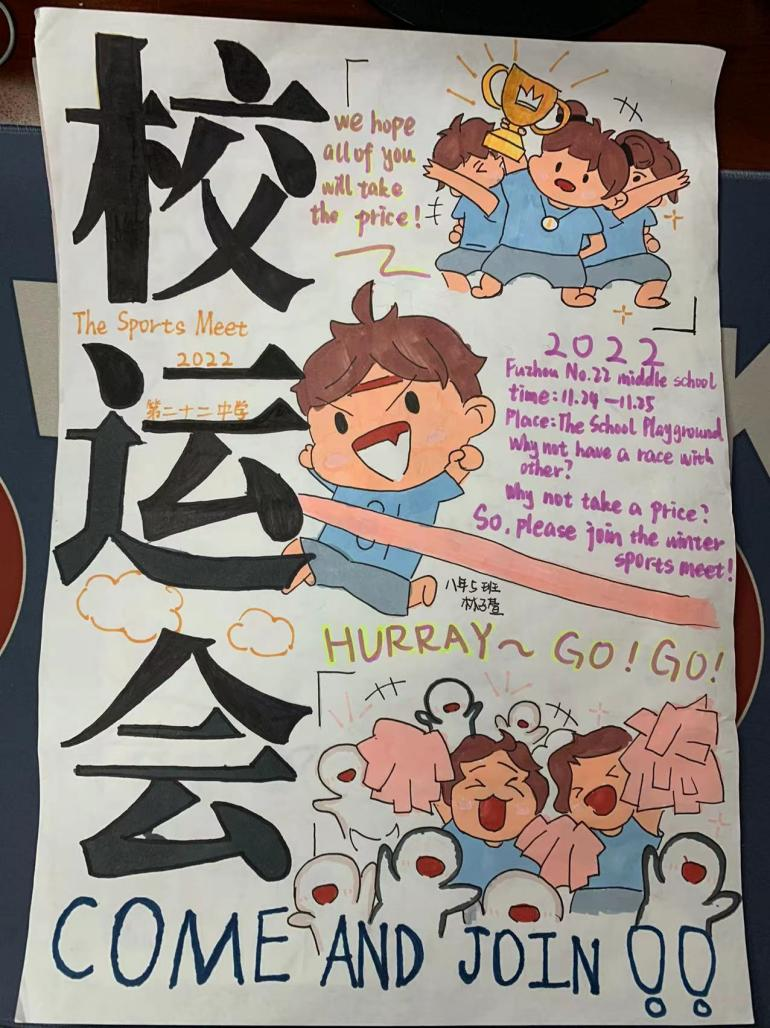 校运会
we hope
all of you
will take
the price!
The Sports Meet
2022
第二十二中学
2022
Fuzhou No.22 middle school
time: 11.24—11.25
Place: The School Playground
Why not have a race with
other?
Why not take a price?
So, please join the winter
sports meet!
八年5班
HURRAY~ GO! GO!
COME AND JOIN!!